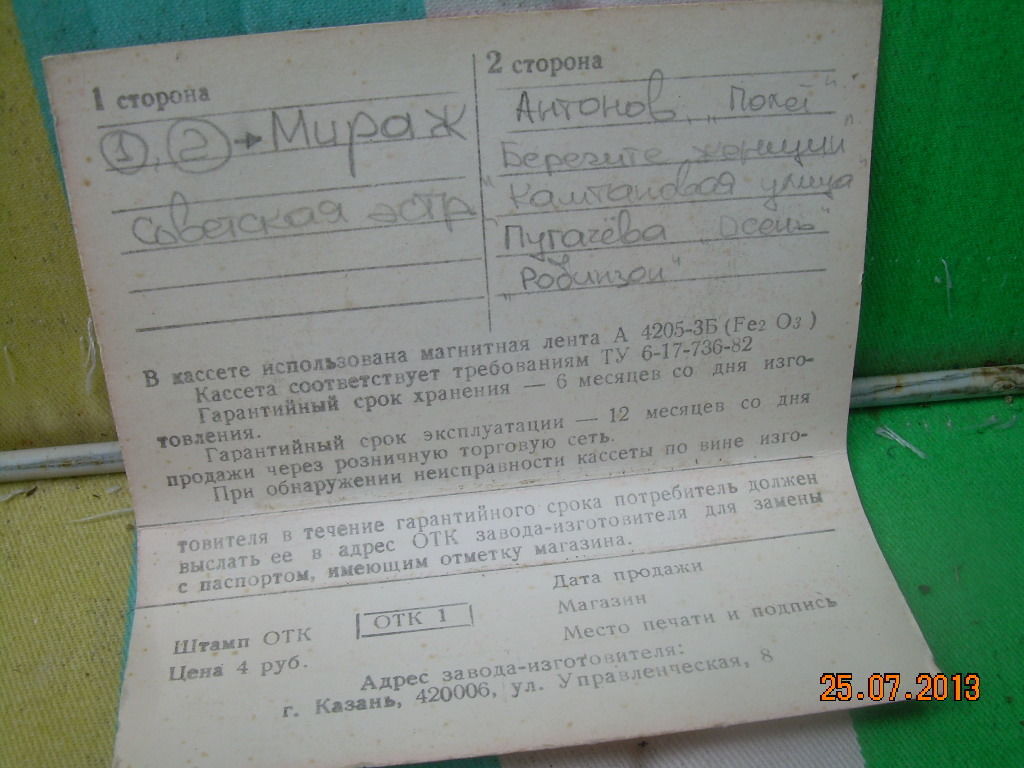 1 сторона
①, ② → Мираж
Советская эстр
2 сторона
Антонов, „Полёт"
Берегите женщин"
"Каштановая улица"
Пугачёва „Осень"
„Робинзон"
В кассете использована магнитная лента А 4205-3Б (Fe₂ O₃)
Кассета соответствует требованиям ТУ 6-17-736-82
Гарантийный срок хранения — 6 месяцев со дня изго-
товления.
Гарантийный срок эксплуатации — 12 месяцев со дня
продажи через розничную торговую сеть.
При обнаружении неисправности кассеты по вине изго-
товителя в течение гарантийного срока потребитель должен
выслать ее в адрес ОТК завода-изготовителя для замены
с паспортом, имеющим отметку магазина.
Штамп ОТК
ОТК 1
Цена 4 руб.
Дата продажи
Магазин
Место печати и подпись
Адрес завода-изготовителя:
г. Казань, 420006, ул. Управленческая, 8
25.07.2013